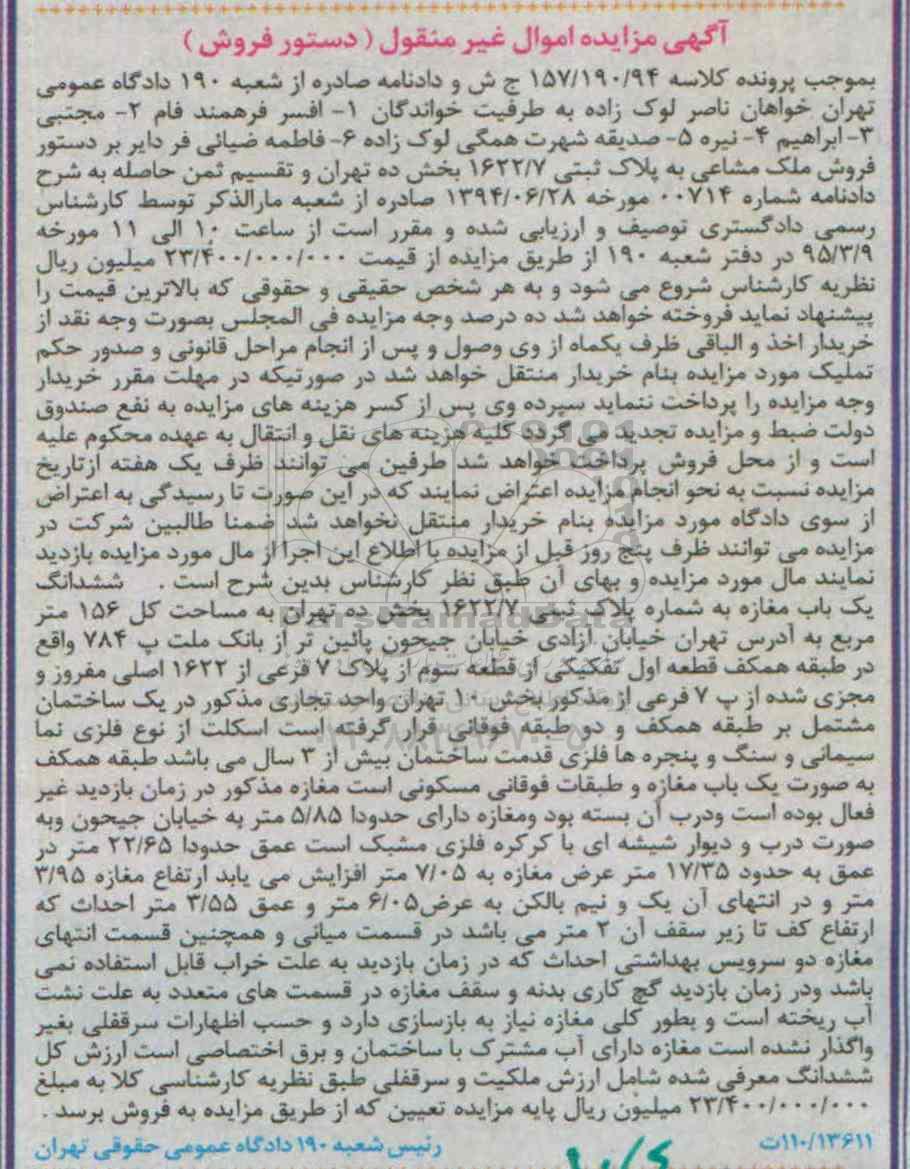 آگهی مزایده اموال غیر منقول ( دستور فروش )
بموجب پرونده کلاسه ۱۵۷/۱۹۰/۹۴ ج ش و دادنامه صادره از شعبه ۱۹۰ دادگاه عمومی
تهران خواهان ناصر لوک زاده به طرفیت خواندگان ۱- افسر فرهمند فام ۲- مجتبی
۳- ابراهیم ۴- نیره ۵- صدیقه شهرت همگی لوک زاده ۶- فاطمه ضیائی فر دایر بر دستور
فروش ملک مشاعی به پلاک ثبتی ۱۶۲۲/۷ بخش ده تهران و تقسیم ثمن حاصله به شرح
دادنامه شماره ۰۰۷۱۴ مورخه ۱۳۹۴/۰۶/۲۸ صادره از شعبه مارالذکر توسط کارشناس
رسمی دادگستری توصیف و ارزیابی شده و مقرر است از ساعت ۱۰ الی ۱۱ مورخه
۹۵/۳/۹ در دفتر شعبه ۱۹۰ از طریق مزایده از قیمت ۲۳/۴۰۰/۰۰۰/۰۰۰ میلیون ریال
نظریه کارشناس شروع می شود و به هر شخص حقیقی و حقوقی که بالاترین قیمت را
پیشنهاد نماید فروخته خواهد شد ده درصد وجه مزایده فی المجلس بصورت وجه نقد از
خریدار اخذ و الباقی ظرف یکماه از وی وصول و پس از انجام مراحل قانونی و صدور حکم
تملیک مورد مزایده بنام خریدار منتقل خواهد شد در صورتیکه در مهلت مقرر خریدار
وجه مزایده را پرداخت ننماید سپرده وی پس از کسر هزینه های مزایده به نفع صندوق
دولت ضبط و مزایده تجدید می گردد کلیه هزینه های نقل و انتقال به عهده محکوم علیه
است و از محل فروش پرداخت خواهد شد طرفین می توانند ظرف یک هفته ازتاریخ
مزایده نسبت به نحو انجام مزایده اعتراض نمایند که در این صورت تا رسیدگی به اعتراض
از سوی دادگاه مورد مزایده بنام خریدار منتقل نخواهد شد ضمنا طالبین شرکت در
مزایده می توانند ظرف پنج روز قبل از مزایده با اطلاع این اجرا از مال مورد مزایده بازدید
نمایند مال مورد مزایده و بهای آن طبق نظر کارشناس بدین شرح است . ششدانگ
یک باب مغازه به شماره پلاک ثبتی ۱۶۲۲/۷ بخش ده تهران به مساحت کل ۱۵۶ متر
مربع به آدرس تهران خیابان آزادی خیابان جیحون پائین تر از بانک ملت پ ۷۸۴ واقع
در طبقه همکف قطعه اول تفکیکی از قطعه سوم از پلاک ۷ فرعی از ۱۶۲۲ اصلی مفروز و
مجزی شده از پ ۷ فرعی از مذکور بخش ۱۰ تهران واحد تجاری مذکور در یک ساختمان
مشتمل بر طبقه همکف و دو طبقه فوقانی قرار گرفته است اسکلت از نوع فلزی نما
سیمانی و سنگ و پنجره ها فلزی قدمت ساختمان بیش از ۳ سال می باشد طبقه همکف
به صورت یک باب مغازه و طبقات فوقانی مسکونی است مغازه مذکور در زمان بازدید غیر
فعال بوده است ودرب آن بسته بود ومغازه دارای حدودا ۵/۸۵ متر به خیابان جیحون وبه
صورت درب و دیوار شیشه ای با کرکره فلزی مشبک است عمق حدودا ۲۲/۶۵ متر در
عمق به حدود ۱۷/۳۵ متر عرض مغازه به ۷/۰۵ متر افزایش می یابد ارتفاع مغازه ۳/۹۵
متر و در انتهای آن یک و نیم بالکن به عرض۶/۰۵ متر و عمق ۳/۵۵ متر احداث که
ارتفاع کف تا زیر سقف آن ۲ متر می باشد در قسمت میانی و همچنین قسمت انتهای
مغازه دو سرویس بهداشتی احداث که در زمان بازدید به علت خراب قابل استفاده نمی
باشد ودر زمان بازدید گچ کاری بدنه و سقف مغازه در قسمت های متعدد به علت نشت
آب ریخته است و بطور کلی مغازه نیاز به بازسازی دارد و حسب اظهارات سرقفلی بغیر
واگذار نشده است مغازه دارای آب مشترک با ساختمان و برق اختصاصی است ارزش کل
ششدانگ معرفی شده شامل ارزش ملکیت و سرقفلی طبق نظریه کارشناسی کلا به مبلغ
۲۳/۴۰۰/۰۰۰/۰۰۰ میلیون ریال پایه مزایده تعیین که از طریق مزایده به فروش برسد .
۱۱۰/۱۳۶۱۱ت رئیس شعبه ۱۹۰ دادگاه عمومی حقوقی تهران
ParsNamadData